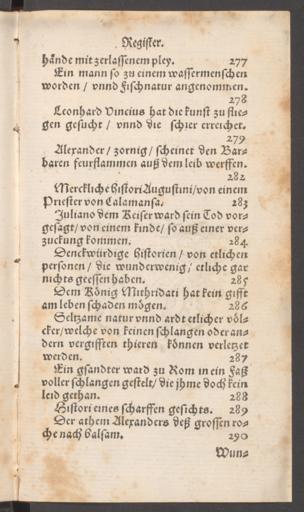 Register.
hände mit zerlassenem pley. 277
Ein mann so zu einem wassermenschen
worden / vnnd fischnatur angenommen.
278
Leonhard Vincius hat die kunst zu flie-
gen gesucht / vnnd die schier erreichet.
279
Alexander / zornig / scheinet den Bar-
baren feurflammen auß dem leib werffen.
282
Merckliche histori Augustini / von einem
Priester von Calamansa. 283
Juliano dem Keiser ward sein Tod vor-
gesagt / von einem kinde / so auß einer ver-
zuckung kommen. 284
Denckwirdige historien / von etlichen
personen / die wunderwenig / etliche gar
nichts geessen haben. 285
Dem König Mithridati hat kein gifft
am leben schaden mögen. 286
Seltzame natur vnnd ardt etlicher völ-
cker / welche von keinen schlangen oder an-
dern vergifften thieren können verletzet
werden. 287
Ein gsandter ward zu Rom in ein Faß
voller schlangen gestelt / die jhme doch kein
leid gethan. 288
Histori eines scharffen gesichts. 289
Der athem Alexanders deß grossen ro-
che nach balsam. 290
Wun-